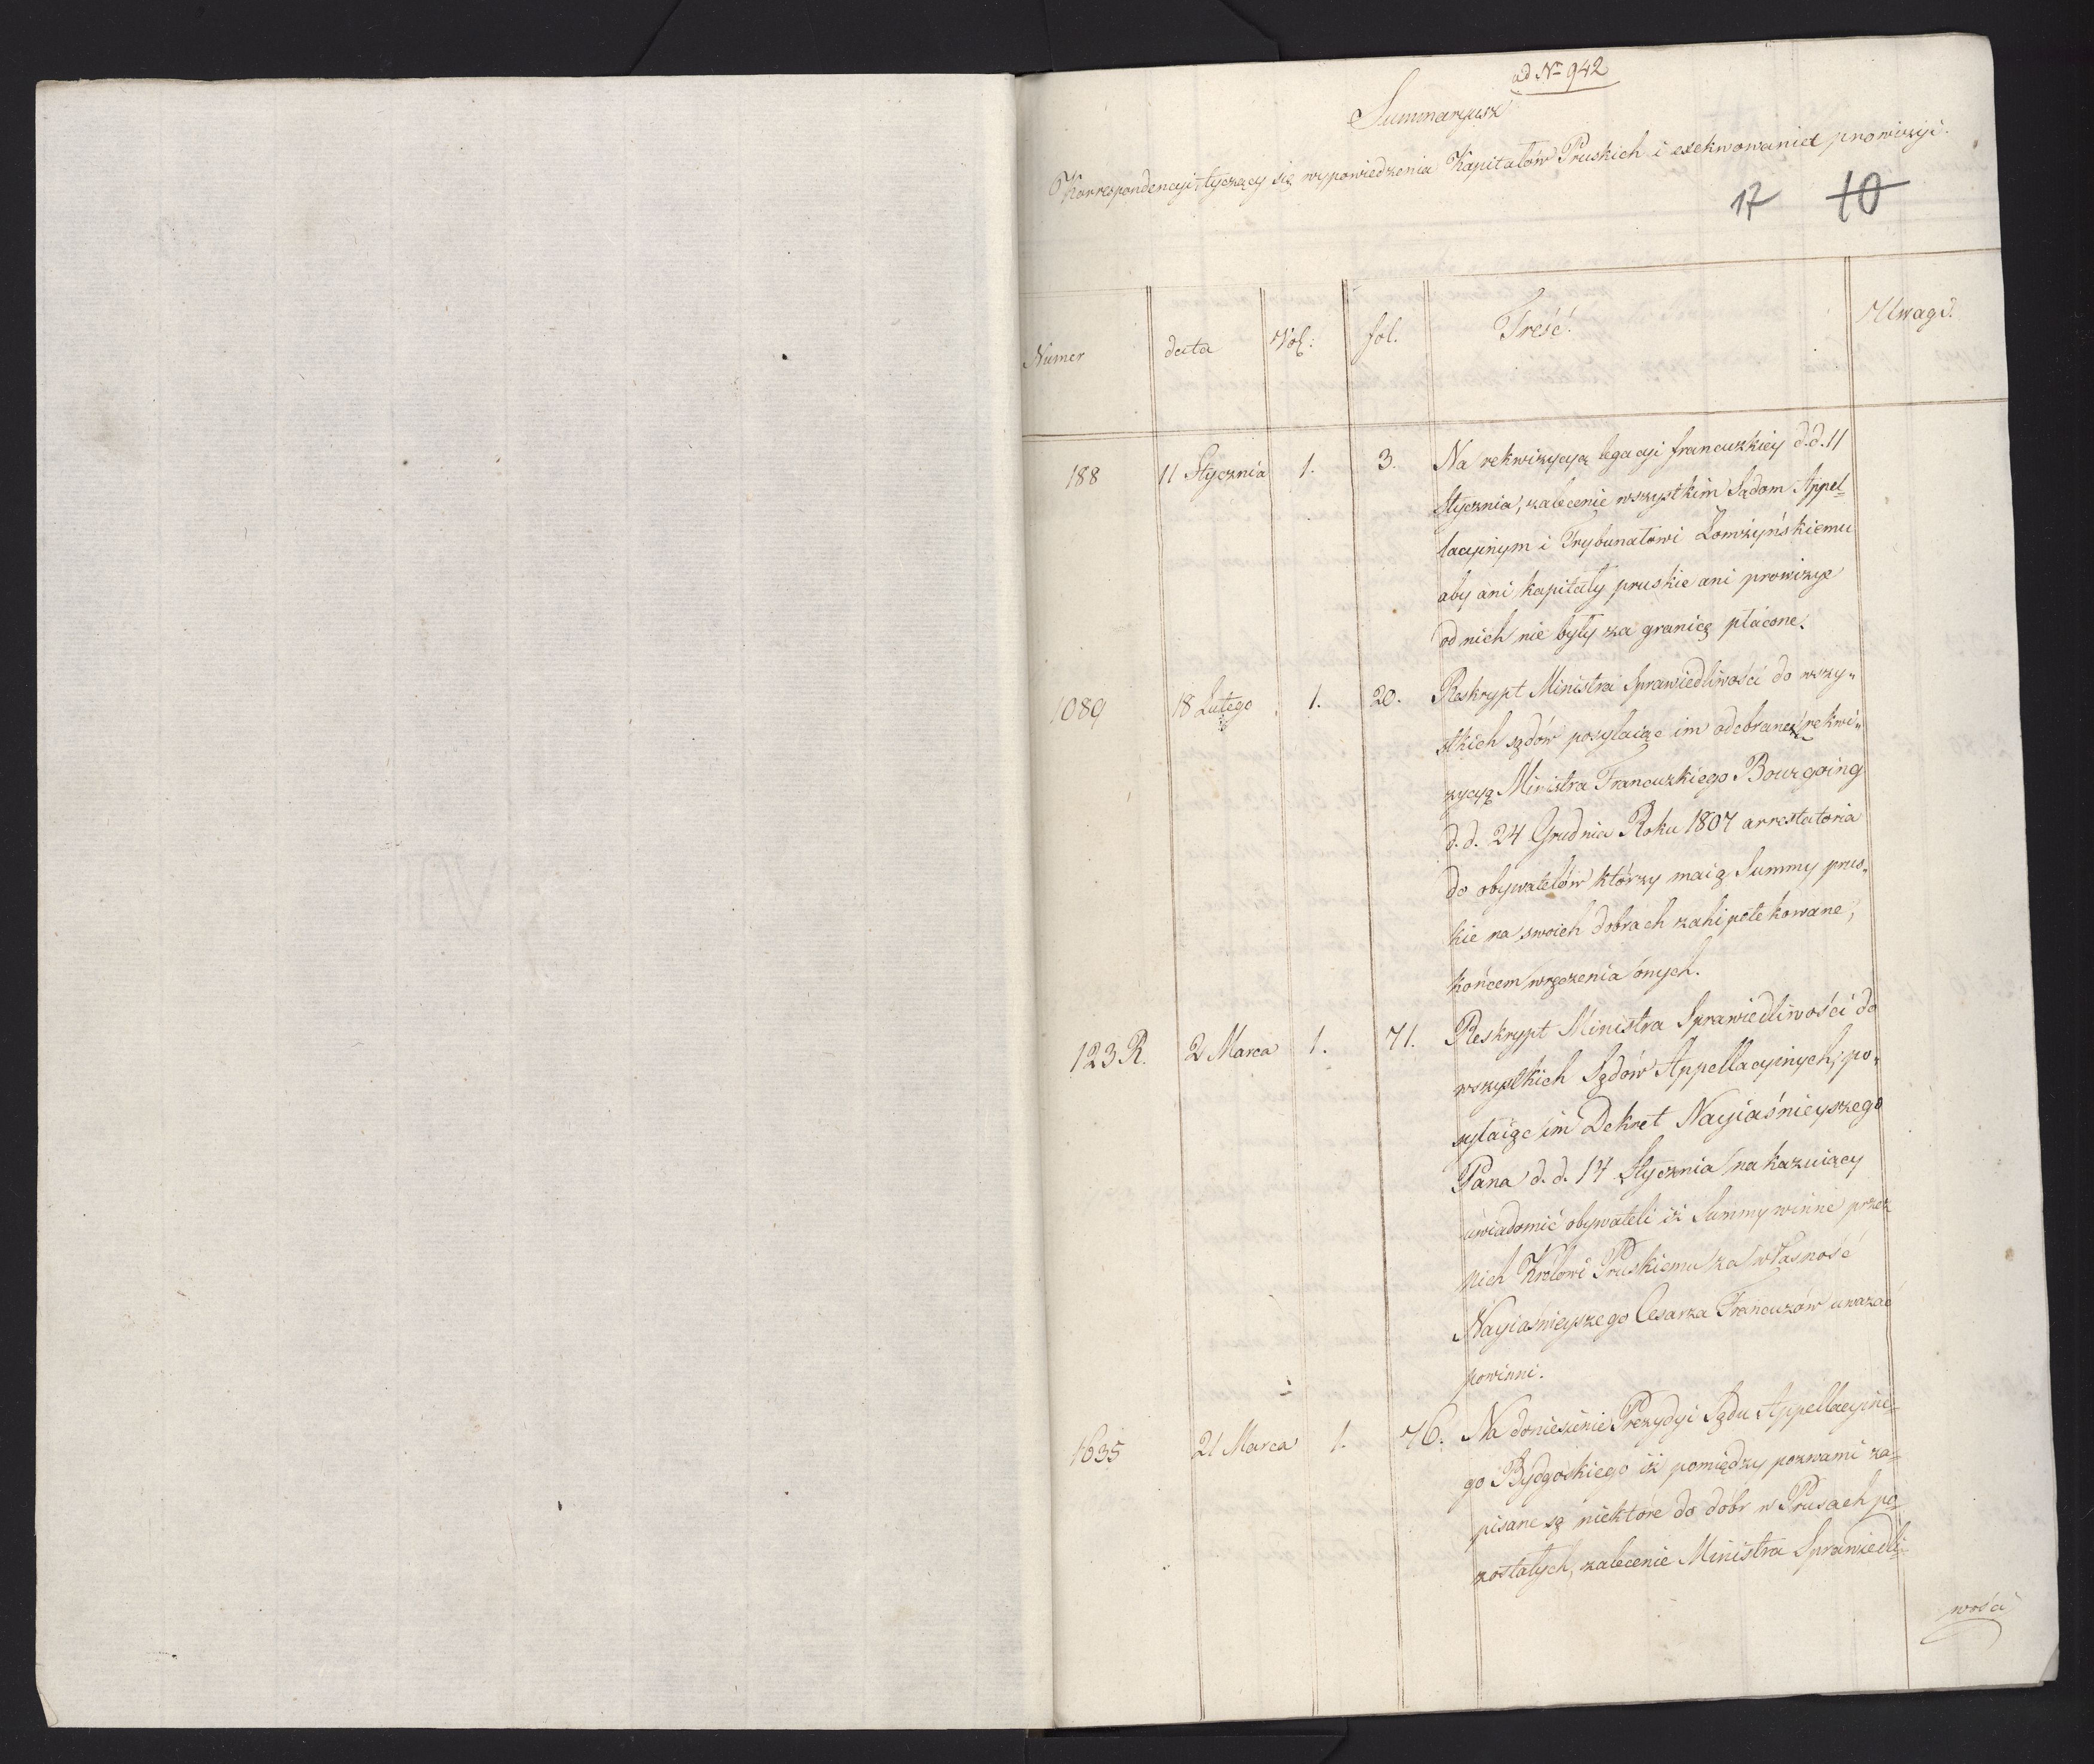 ad Nr 942
Summaryusz
Korrespondencyi tyczący się wypowiedzenia Kapitałów Pruskich i exekwowania prowizyi.
17 10
Numer data Vol: fol. Treść. Uwagi.
188 11 Stycznia 1. 3. Na rekwizycyą legacyi francuzkiey d.d. 11
Stycznia, zalecenie wszystkim Sądom Appel=
lacyinym i Trybunałowi Łomżyńskiemu
aby ani kapitały pruskie ani prowizye
od nich nie były za granicę płacone.
1089 18 Lutego 1. 20. Reskrypt Ministra Sprawiedliwości do wszy=
stkich sądów posyłaiąc im odebraną rekwi=
zycyą Ministra Francuzkiego Bourgoing
d.d. 24 Grudnia Roku 1807 arrestatoria
do obywatelów którzy maią Summy prus=
kie na swoich dobrach zahipotekowane,
końcem wręczenia onych.
123 R. 2 Marca 1. 71. Reskrypt Ministra Sprawiedliwości do
wszystkich Sądów Appellacyinych, po=
syłaiąc im Dekret Nayiaśnieyszego
Pana d.d. 14 Stycznia nakazuiący
uwiadomić obywateli iż Summy winne przez
nich Królowi Pruskiemu za własność
Nayiaśnieyszego Cesarza Francuzów uważać
powinni.
1635 21 Marca 1. 76. Na doniesienie Prezydyi Sądu Appellacyine=
go Bydgoskiego iż pomiędzy pozwami za=
pisane są niektóre do dóbr w Prusach po=
zostałych, zalecenie Ministra Sprawiedli=
wości